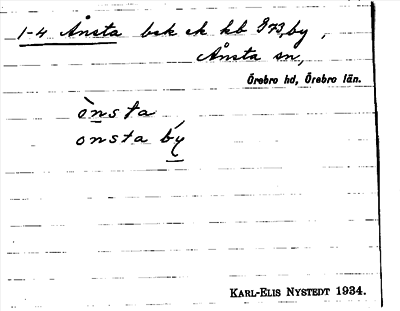 1-4 Ånsta bsk ek kb 873, by,
Ånsta sn,
Örebro hd, Örebro län.
ònsta
onsta by
KARL-ELIS NYSTEDT 1934.